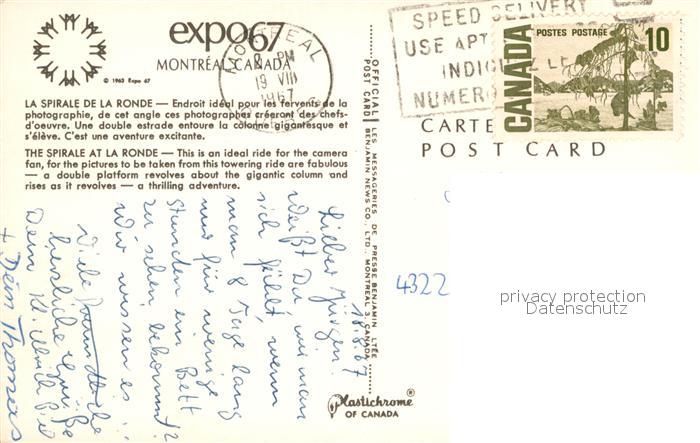 expo67
MONTRÉAL, CANADA
© 1963 Expo 67
LA SPIRALE DE LA RONDE — Endroit idéal pour les fervents de la
photographie, de cet angle ces photographes créeront des chefs-
d'oeuvre. Une double estrade entoure la colonne gigantesque et
s'élève. C'est une aventure excitante.
THE SPIRALE AT LA RONDE — This is an ideal ride for the camera
fan, for the pictures to be taken from this towering ride are fabulous
— a double platform revolves about the gigantic column and
rises as it revolves — a thrilling adventure.
MONTREAL
PM
19 VIII
1967
SPEED DELIVERY
USE APT
INDIQUEZ LE
NUMERO
POSTES POSTAGE
10
CANADA
CARTE
POST CARD
OFFICIAL POST CARD
LES MESSAGERIES DE PRESSE BENJAMIN LTÉE
BENJAMIN NEWS CO. LTD. MONTREAL 3, CANADA
18.8.67
Lieber Jürgen!
Weißt Du wie man
sich fühlt, wenn
man 8 Tage lang
nur für wenige
Stunden ein Bett
zu sehen bekommt?
Wir wissen es!
Viele
herzliche Grüße
Dein
+ Dein Thomas
4322
Plastichrome®
OF CANADA
privacy protection
Datenschutz